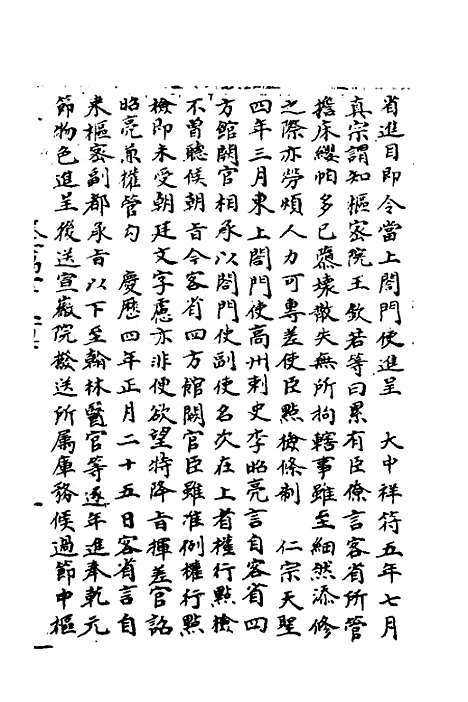 省進目即令當上閤門使進呈　大中祥符五年七月
真宗謂知樞密院王欽若等曰累有臣僚言客省所管
擔床纓帕多已隳壞散失無所拘轄事雖至細然添修
之際亦勞煩人力可專差使臣點檢條制　仁宗天聖
四年三月東上閤門使高州刺史李昭亮言自客省四
方館闕官相承以閤門使副使名次在上者權行點檢
不曾聽候朝旨今客省四方館闕官臣雖准例權行點
檢即未受朝廷文字慮亦非便欲望特降旨揮差官詔
昭亮兼權管勾　慶曆四年正月二十五日客省言自
來樞密副都承旨以下至翰林醫官等逐年進奉乾元
節物色進呈後送宣徽院發送所属庫務候過節中樞